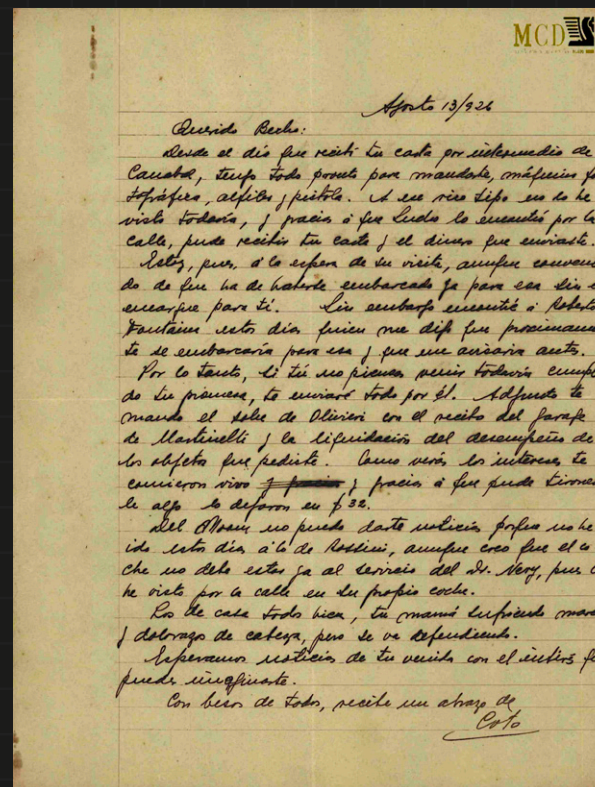 MCD
Agosto 13/926
Querido Becho:
Desde el día que recibí tu carta por intermedio de
Canabal, tengo todo pronto para mandarte, máquina fo
tográfica, alfiler y pistola. A ese rico tipo no lo he
visto todavía, y gracias á que Lucho lo encontró por la
calle, pude recibir tu carta y el dinero que enviaste.
Estoy, pues, á la espera de su visita, aunque conven
do de que ha de haberse embarcado ya para esa sin
encargue para tí. Sin embargo encontré á Roberto
Fontaina estos días quien me dijo que proximamen
te se embarcaría para esa y que me avisaría antes.
Por lo tanto, si tú no piensas venir todavía cumpl
do tu promesa, te enviaré todo por él. Adjunto te
mando el sobre de Olivieri con el recibo del garage
de Martinelli y la liquidación del desempeño de
los objetos que pediste. Como verás los intereses te
comieron vivo y gracias á que pude
le algo lo dejaron en $ 32.
Del no puedo darte noticias porque no he
ido estos días á lo de Rossini, aunque creo que el co
che no debe estar ya al servicio del Dr. Nery, pues
he visto por la calle en su propio coche.
Los de casa todos bien, tu mamá sufriendo
y dolorazos de cabeza, pero se va defendiendo.
Esperamos noticias de tu venida con el interés
puedes imaginarte.
Con besos de todos, recibe un abrazo de
Coto